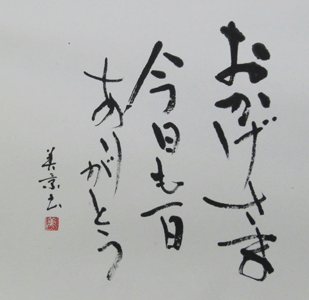 おかげさま
今日も一日
ありがとう
美京书